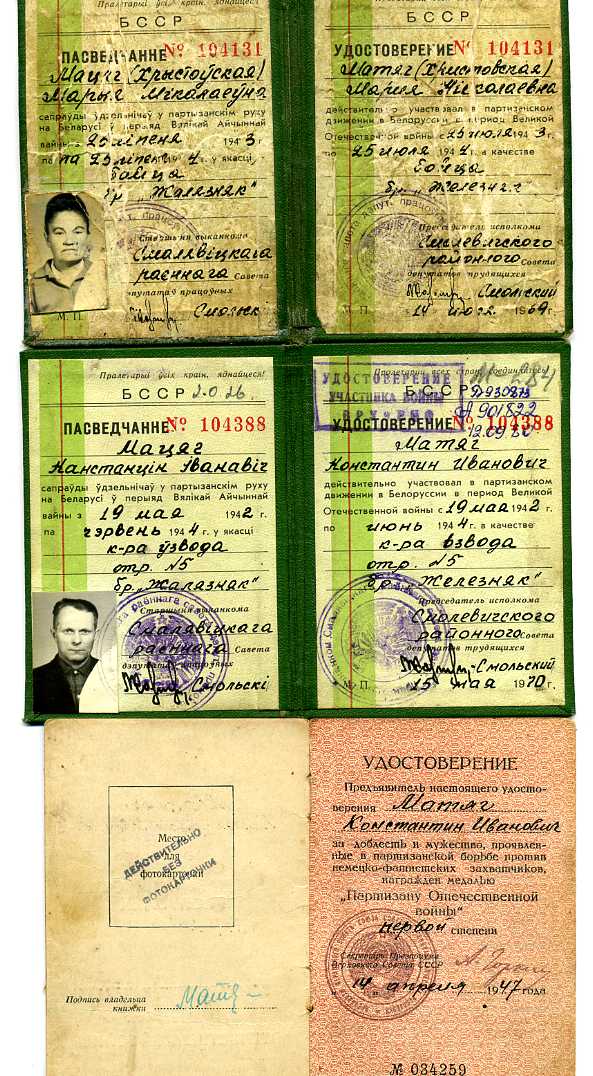 Пралетарыі ўсіх краін, яднайцеся!
БССР
ПАСВЕДЧАННЕ № 104131
Мацяг (Хрыстоўская)
Марыя Мікалаеўна
сапраўды ўдзельнічаў у партызанскім руху
на Беларусі ў перыяд Вялікай Айчыннай
вайны з 25 ліпеня 1943 г.
па 25 ліпеня 1944 г. у якасці
байца
бр. „Жалязняк"
Старшыня выканкома
Смалявіцкага
раённага Совета
дэпутатаў працоўных
М. П. Смольскі
БССР
УДОСТОВЕРЕНИЕ № 104131
Матяг (Христовская)
Мария Николаевна
действительно участвовал в партизанском
движении в Белоруссии в период Великой
Отечественной войны с 25 июля 1943 г.
по 25 июля 1944 г. в качестве
бойца
бр. „Железняк"
Председатель исполкома
Смолевичского
районного Совета
депутатов трудящихся
Смольский
М. П. 14 1969 г.
Пралетарыі ўсіх краін, яднайцеся!
БССР
ПАСВЕДЧАННЕ № 104388
Мацяг
Канстанцін Іванавіч
сапраўды ўдзельнічаў у партызанскім руху
на Беларусі ў перыяд Вялікай Айчыннай
вайны з 19 мая 1942 г.
па чэрвень 1944 г. у якасці
к-ра ўзвода
отр. №5
бр. „Жалязняк"
Старшыня выканкома
Смалявіцкага
раённага Совета
дэпутатаў працоўных
Смольскі
Пролетарии всех стран, соединяйтесь!
БССР
УДОСТОВЕРЕНИЕ
УЧАСТНИКА ВОЙНЫ
ВРУЧЕНО
Д930873
А901822
12.09.80
УДОСТОВЕРЕНИЕ № 104388
Матяг
Константин Иванович
действительно участвовал в партизанском
движении в Белоруссии в период Великой
Отечественной войны с 19 мая 1942 г.
по июнь 1944 г. в качестве
к-ра взвода
отр. №5
бр. „Железняк"
Председатель исполкома
Смолевичского
районного Совета
депутатов трудящихся
Смольский
М. П. 15 мая 1970 г.
Место
для
фотокарточки
ДЕЙСТВИТЕЛЬНО
БЕЗ
ФОТОКАРТОЧКИ
Подпись владельца
книжки
УДОСТОВЕРЕНИЕ
Предъявитель настоящего удосто-
верения Матяг
Константин Иванович
за доблесть и мужество, проявлен-
ные в партизанской борьбе против
немецко-фашистских захватчиков,
награжден медалью
„Партизану Отечественной
войны"
первой степени
Секретарь Президиума
Верховного Совета СССР
„14" апреля 1947 года
№ 034259